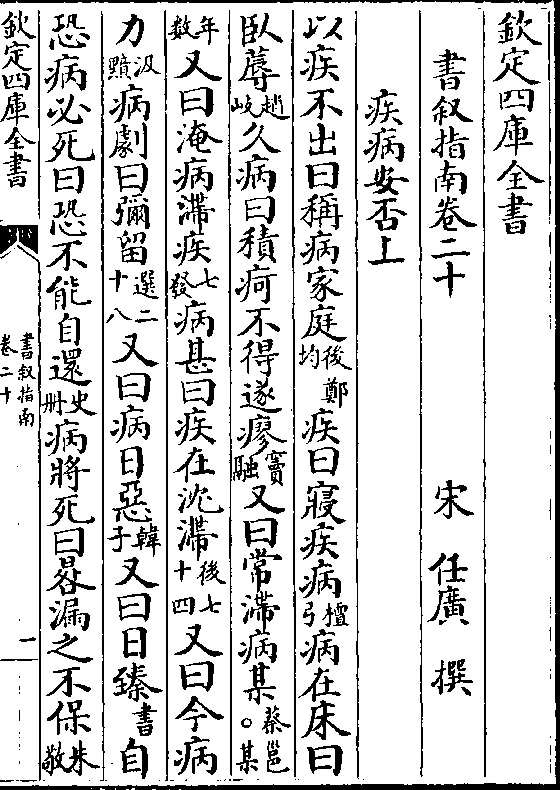 欽定四庫全書
書叙指南卷二十
宋 任廣 撰
疾病安否上
以疾不出曰稱病家庭後鄭均疾曰寢疾病檀弓病在床曰
臥蓐趙岐久病曰積疴不得遂瘳竇融又曰常滯病某蔡邕○某
年數又曰淹病滯疾七發病甚曰疾在沈滯後七十四又曰今病
力汲黯病劇曰彌留選二十八又曰病日惡韓子又曰日臻書自
恐病必死曰恐不能自還史冊病將死曰晷漏之不保朱敬
欽定四庫全書
書叙指南
卷二十
一